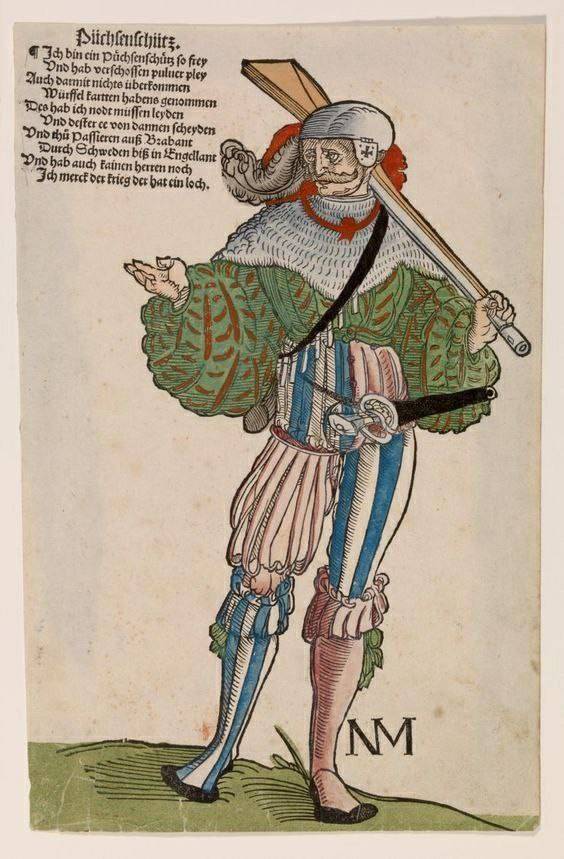 Püchsenschütz.
¶ Ich bin ein Püchsenschütz so frey
Vnd hab verschossen puluer pley
Auch darmit nichts überkommen
Würffel kartten habens genommen
Des hab ich nodt müssen leyden
Vnd dester ee von dannen scheyden
Vnd thů Passieren auß Brabant
Durch Schweden biß in Engellant
Vnd hab auch kainen herren noch
Ich merck der krieg der hat ein loch.
NM